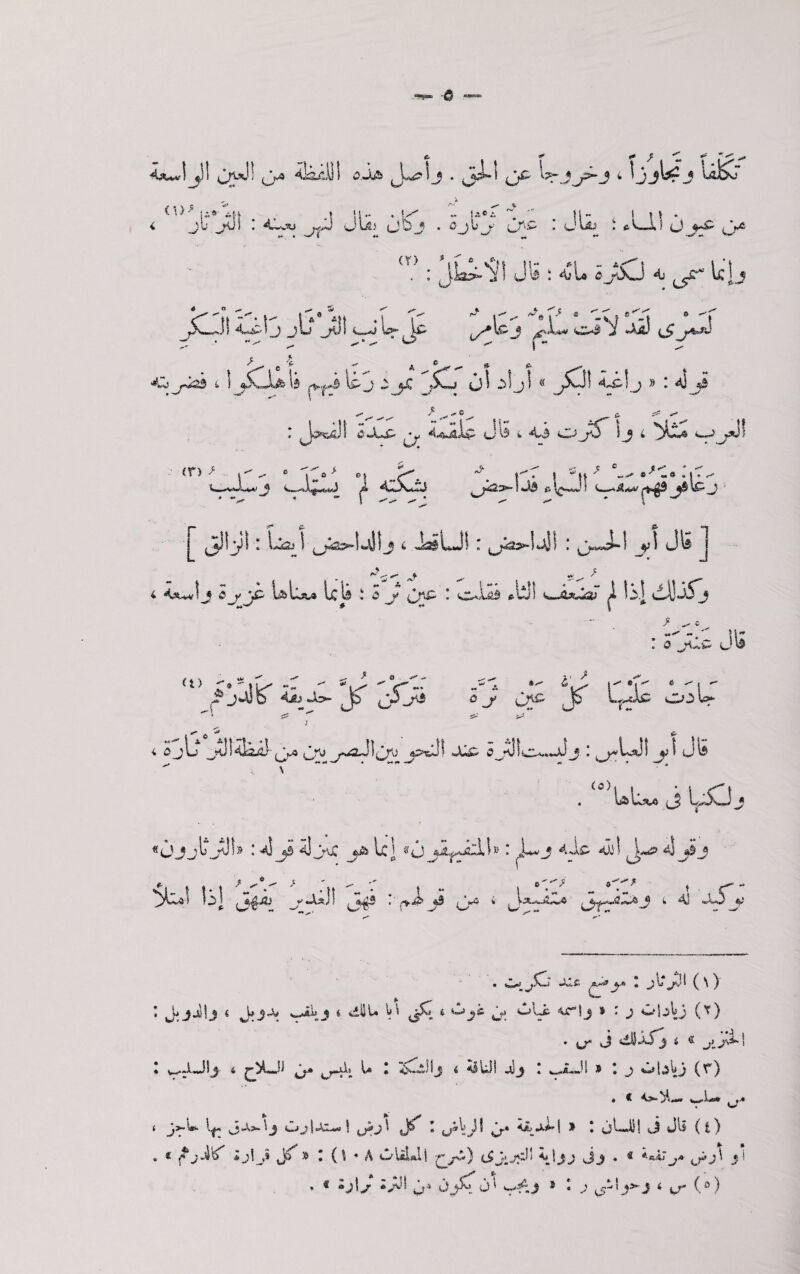 — ٥ —
تكلفا وتجاوزا ، وخروجا عن الحق . وأصل هذه اللفظة من العين الواسعة
من عيون الماء ؛ يقال : عين ثرثارة . وكان يقال لنهر بعينه : الثرثار(١) ،
وإنما سمى به لكثرة مائه ؛ قال الأخطل (٢) :
لعمرى لقد لاقت سليم وعامر على جانب الثرثار راغية البكر
قوله : « راغية البكر » أراد أن بكر ثمود رغا فيهم فأهلكوا ، فضربته
العرب مثلا ، وأكثرت فيه ، قال علقمة بن عبدة الفحل :
رغا فوقهم سقب السماء فداحص بشكته لم يستلب وسليب (٣)
[ قال أبو الحسن : الداحص : الساقط ، والداحض أيضا : الزالق ]
وكذلك إذا لم تضعف الثاء فقلت : عين ثرة ؛ فإنما معناها غزيرة واسعة ،
قال عنترة :
جادت عليها كل عين ثرة فتركن كل حديقة كالدرهم (٤)
قال أبو العباس : وليست الثرة عند النحويين البصريين من لفظة الثرثارة ،
ولكنها فى معناها(٥) .
وقوله صلى الله عليه وسلم : «المتفيهقون» إنما هو بمنزلة قوله : «الثرثارون»
توكيد له ، ومتفيهق متفيعل ، من قولهم : فهق الغدير يفهق إذا امتلأ
(١) الثرثار : موضع عند تكريت .
(٢) زيادات ر : « واسمه غياث بن غوث ، يكنى أبا مالك ، ويلقب بدوبل ، والدوبل :
الخنزير » ، وكذلك فى س .
(٣) زيادات ر : « السقب : ولد الناقة ، والشكة : ما يلبس من السلاح ، والسليب :
من سلب سلاحه » .
(٤) قال فى اللسان : « الحديقة من الرياض : كل أرض استدارت وأحدق بها حاجز ،
أو أرض مرتفعة » . وفى رواية التبريزى (شرح المعلقات ١٠٨) : « كل قرارة كالدرهم » .
(٥) س ، وحواشى ر : « ويجب أن يكون من الثرة ثرارة » .